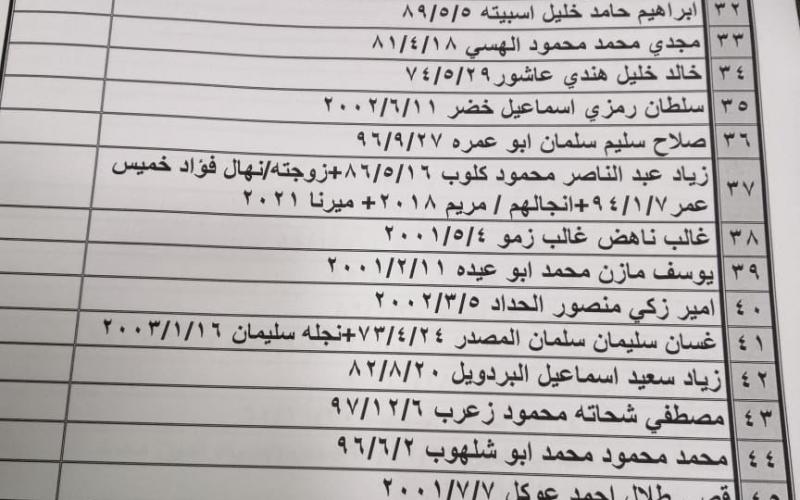 ٣٢ ابراهيم حامد خليل اسبيته ٨٩/٥/٥
٣٣ مجدي محمد محمود الهسي ٨١/٤/١٨
٣٤ خالد خليل هندي عاشور٧٤/٥/٢٩
٣٥ سلطان رمزي اسماعيل خضر ٢٠٠٢/٦/١١
٣٦ صلاح سليم سلمان ابو عمره ٩٦/٩/٢٧
٣٧ زياد عبد الناصر محمود كلوب ٨٦/٥/١٦+زوجته/نهال فؤاد خميس
عمر٩٤/١/٧+انجالهم / مريم ٢٠١٨+ ميرنا ٢٠٢١
٣٨ غالب ناهض غالب زمو ٢٠٠١/٥/٤
٣٩ يوسف مازن محمد ابو عيده ٢٠٠١/٢/١١
٤٠ امير زكي منصور الحداد ٢٠٠٢/٣/٥
٤١ غسان سليمان سلمان المصدر ٧٣/٤/٢٤+نجله سليمان ٢٠٠٣/١/١٦
٤٢ زياد سعيد اسماعيل البردويل ٨٢/٨/٢٠
٤٣ مصطفي شحاته محمود زعرب ٩٧/١٢/٦
٤٤ محمد محمود محمد ابو شلهوب ٩٦/٦/٢
٤٥ قصي طلال احمد عوكل ٢٠٠١/٧/٧